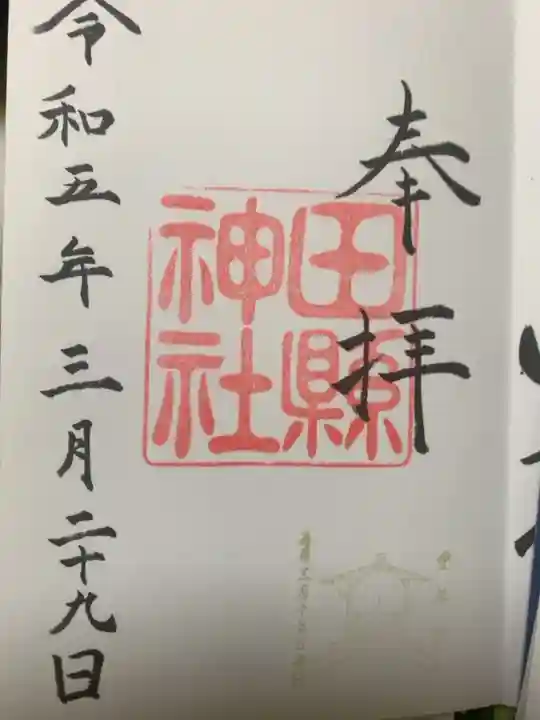 奉拝
田縣
神社
令和五年三月二十九日